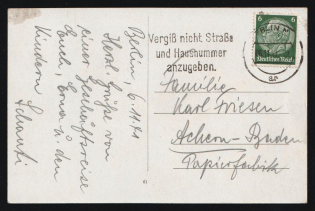 Berlin, 6.11.41
Herzl. Grüße von
einer Geschäftsreise
Euch, Erna u. den
Kindern
Vergiß nicht Straße
und Hausnummer
anzugeben.
6 6
Deutsches Reich
Familie
Karl Friesen
Achern-Baden
Papierfabrik